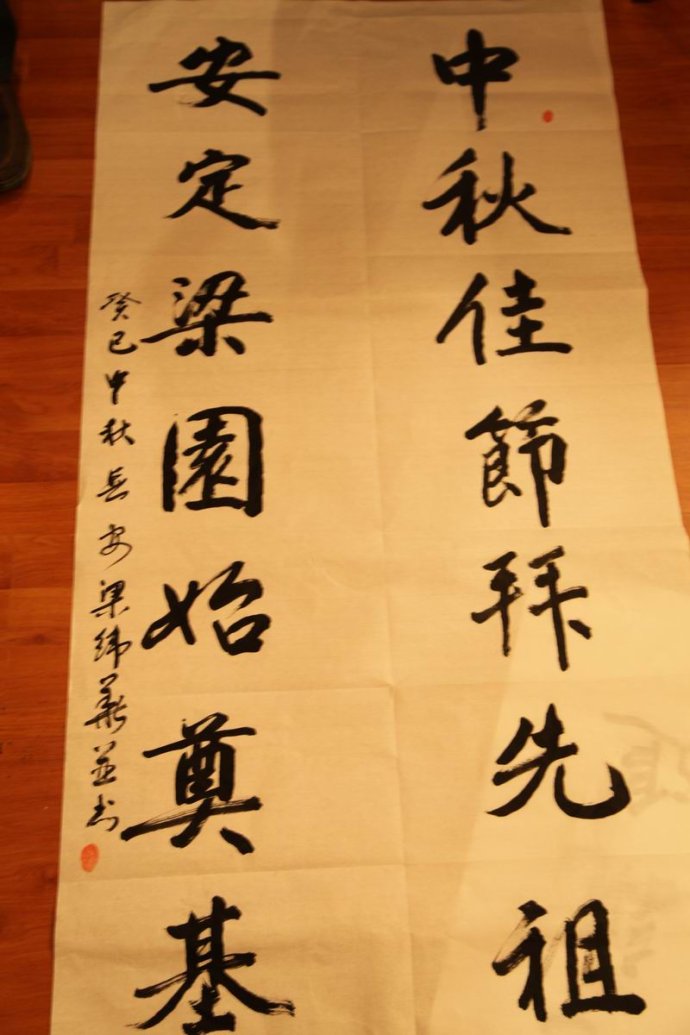 中秋佳節拜先祖
安定梁園始奠基
癸巳中秋岳安梁緯燊並书